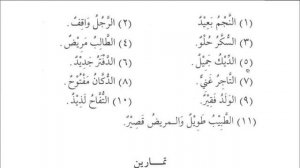 (١) النَّجْمُ بَعِيْدٌ. (٢) الرَّجُلُ وَاقِفٌ.
(٣) السُّكَّرُ حُلْوٌ. (٤) الطَّالِبُ مَرِيْضٌ.
(٥) الدِّيْكُ جَمِيْلٌ. (٦) الدَّفْتَرُ جَدِيْدٌ.
(٧) التَّاجِرُ غَنِيٌّ. (٨) الدُّكَّانُ مَفْتُوْحٌ.
(٩) الوَلَدُ فَقِيْرٌ. (١٠) التُّفَّاحُ لَذِيْذٌ.
(١١) الطَّبِيْبُ طَوِيْلٌ وَالـمريضُ قَصِيْرٌ.
تمارين